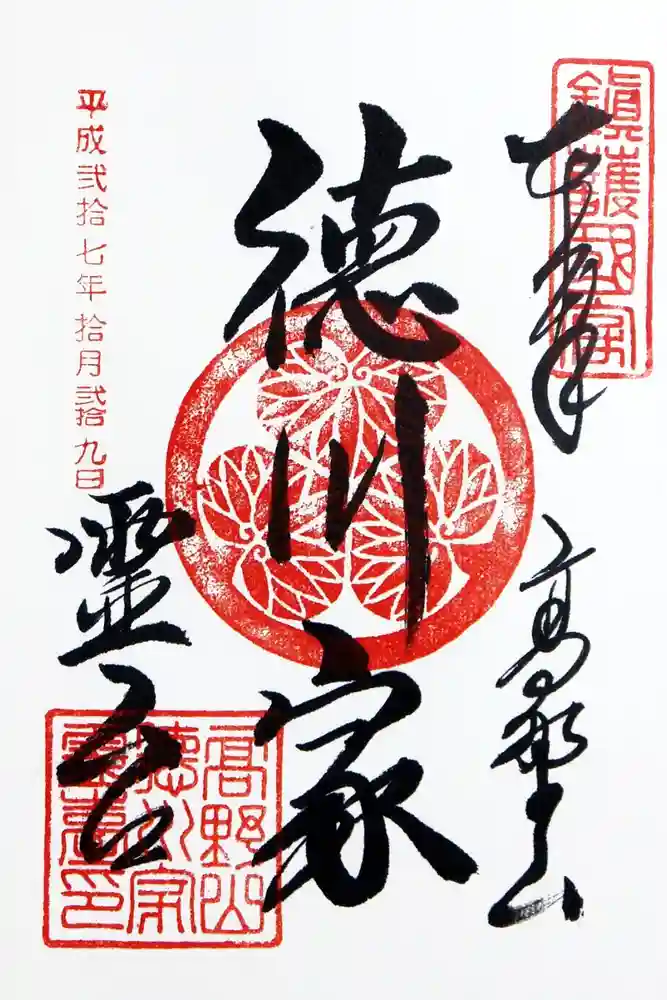 鎭護國家
奉拝
高野山
徳川家
霊台
髙野山
德川家
靈臺印
平成弐拾七年拾月弐拾九日